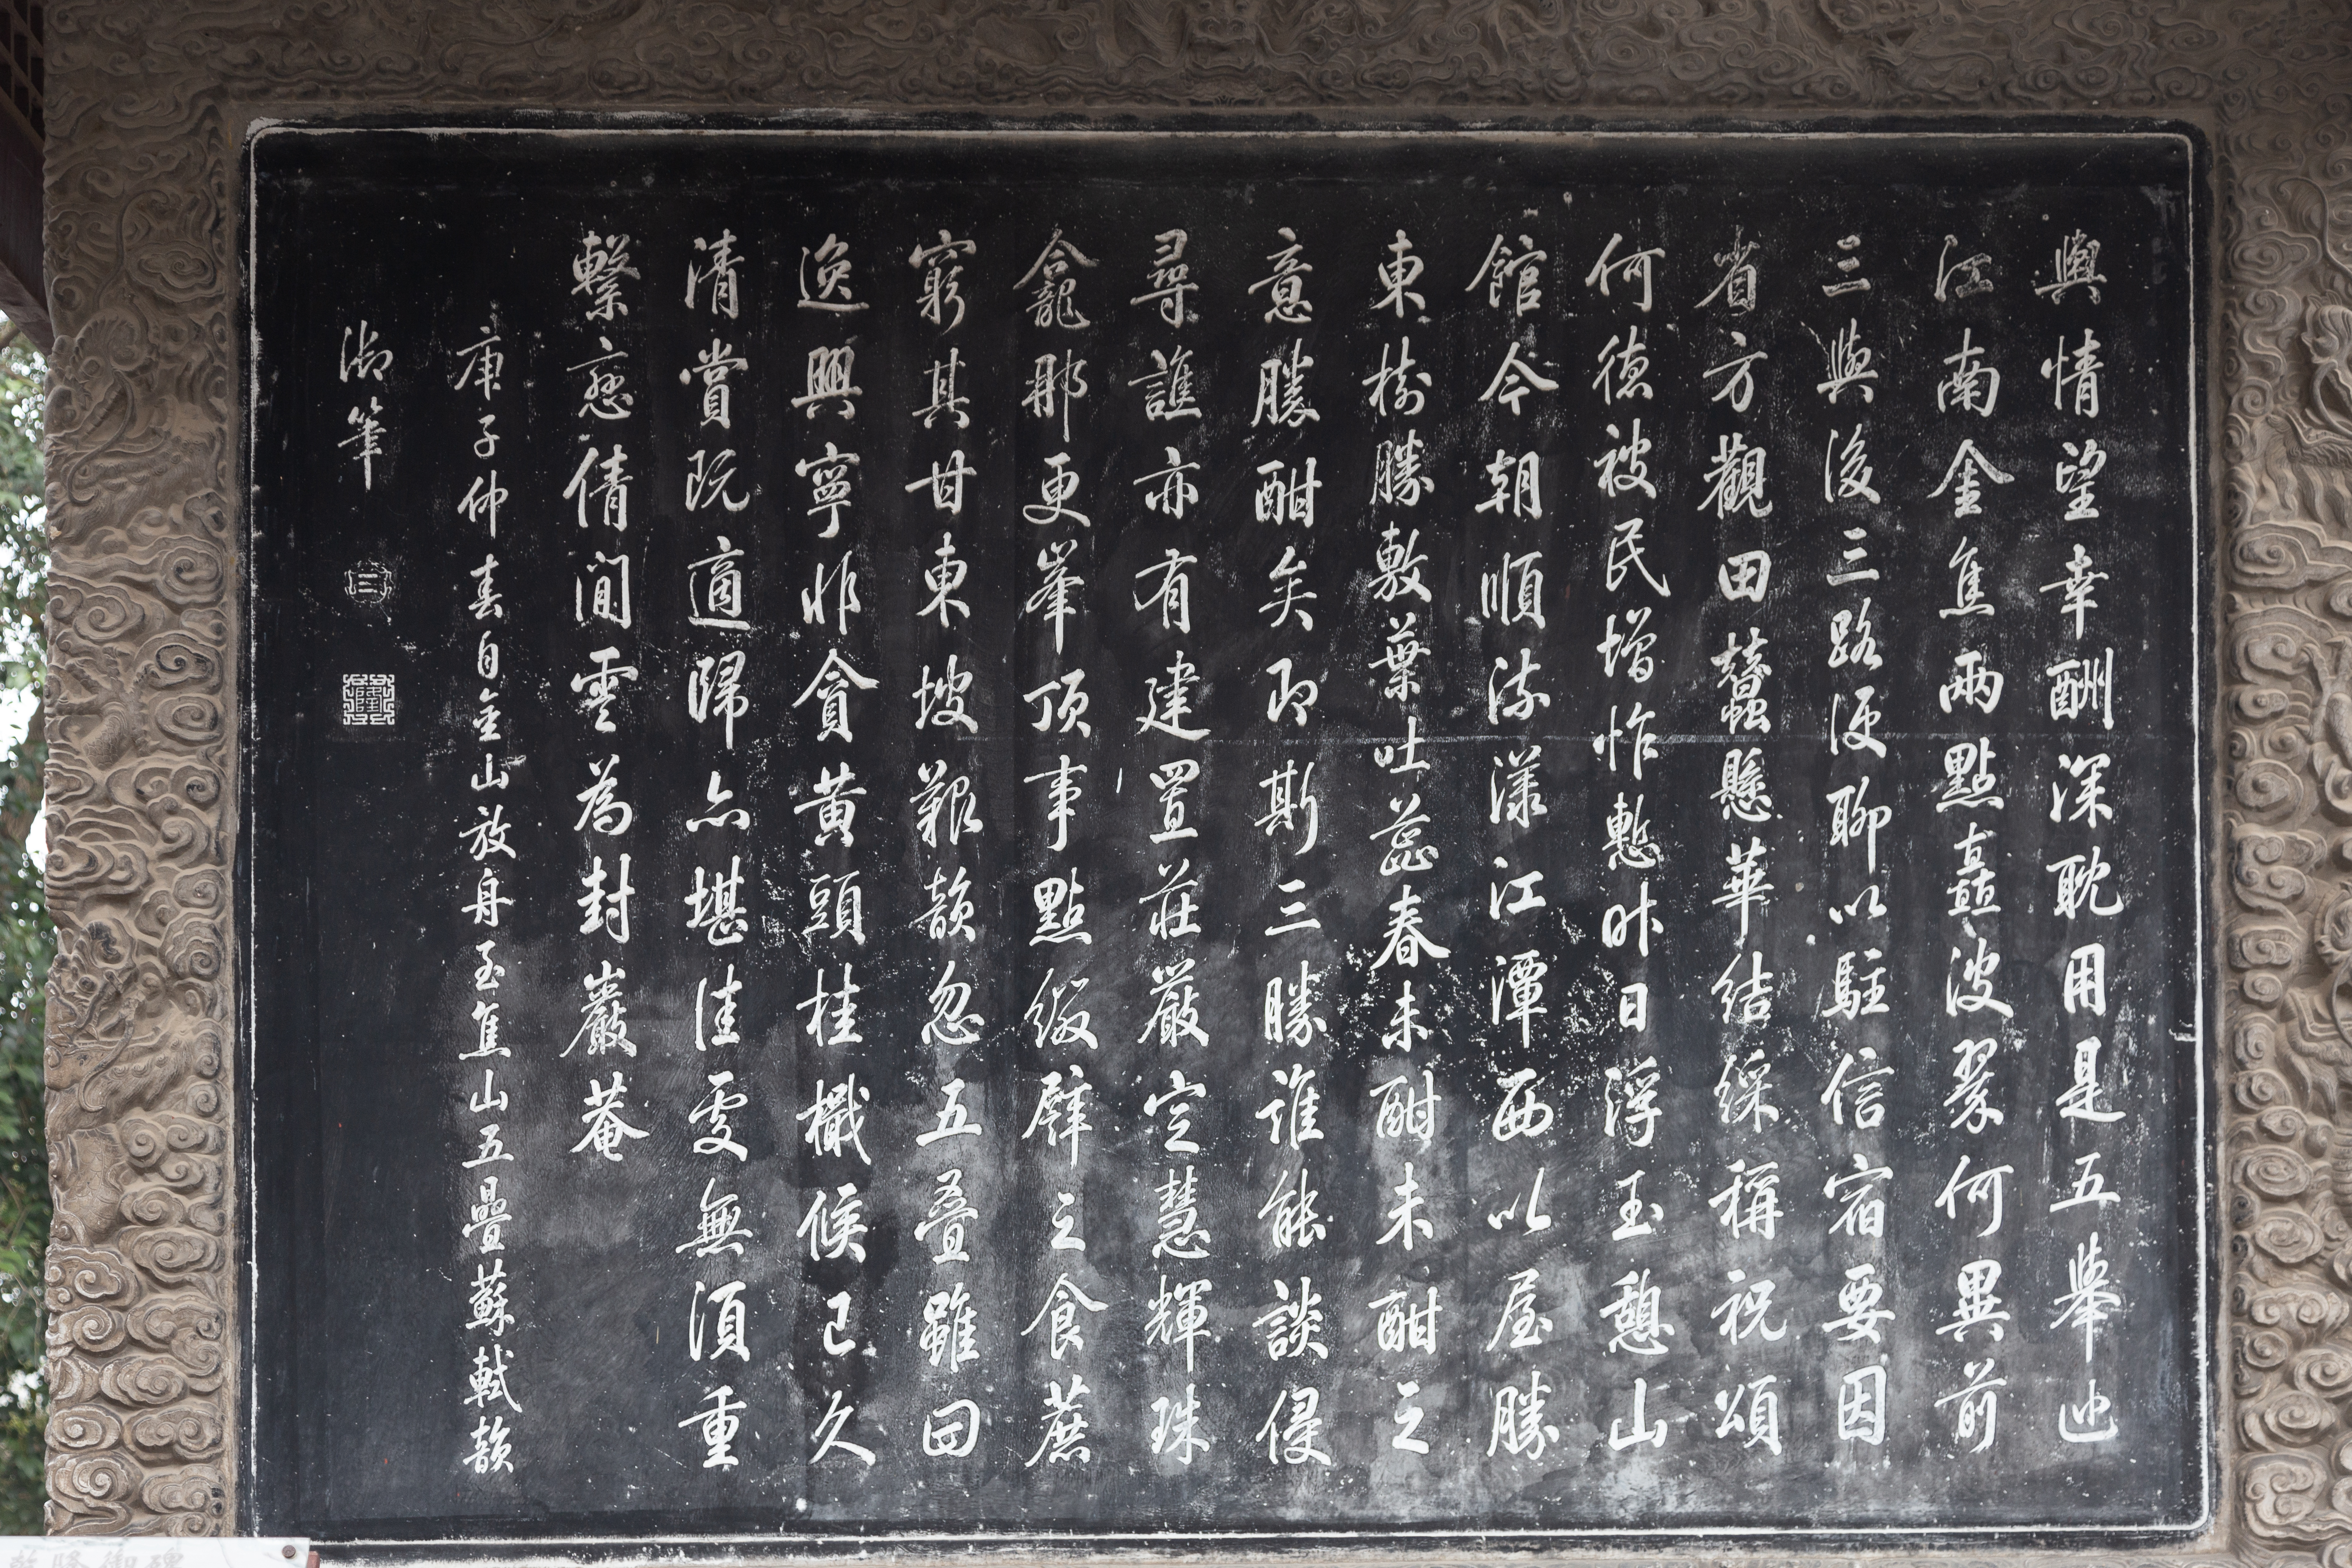 輿情望幸酬深耽用是五舉迆
江南金焦兩點矗波翠何異前
三與後三路便聊以駐信宿要因
省方觀田蠶懸華結綵稱祝頌
何德被民增怍慙昨日浮玉憩山
館今朝順流漾江潭西以屋勝
東樹勝敷葉吐蕊春未酣未酣之
意勝酣矣即斯三勝誰能談侵
尋譙亦有建置莊嚴定慧輝珠
龕那更峯頂事點綴臂之食蔗
窮其甘東坡艱韻忽五叠雖曰
逸興寧非貪黃頭桂檝候已久
清賞既適歸亦堪佳處無須重
繫戀倩閒雲為封巖菴
庚子仲春自金山放舟至焦山五疊蘇軾韻
御筆
三
乾隆御碑